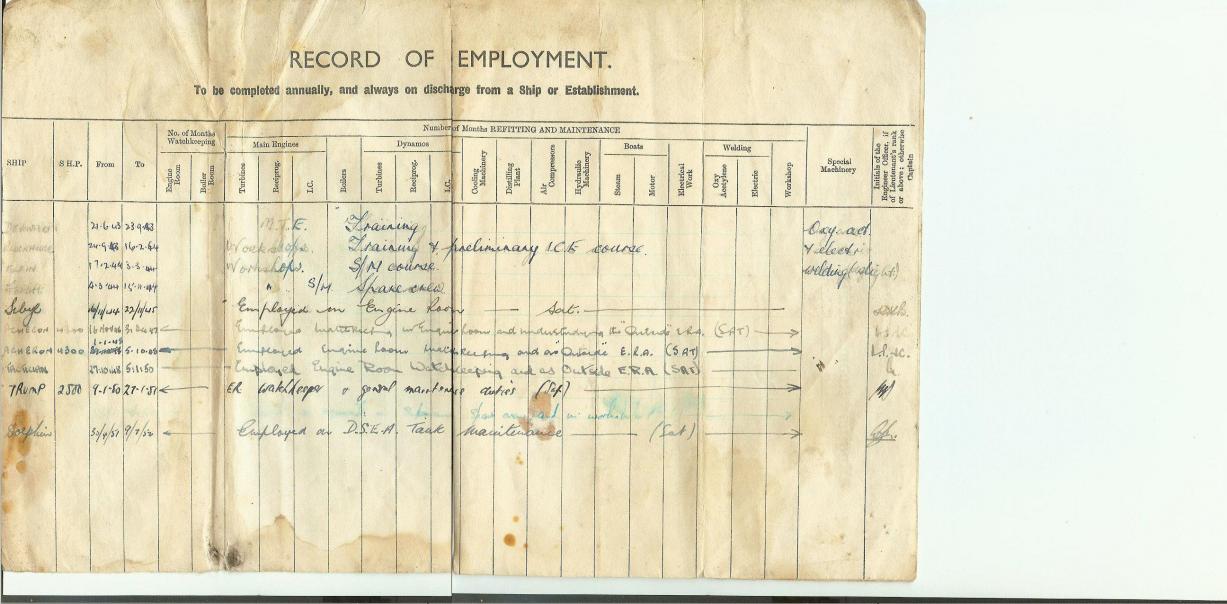 RECORD OF EMPLOYMENT.
To be completed annually, and always on discharge from a Ship or Establishment.
SHIP
S H.P.
From
To
No. of Months Watchkeeping
Engine Room
Boiler Room
Number of Months REFITTING AND MAINTENANCE
Main Engines
Turbines
Reciprog.
I.C.
Boilers
Dynamos
Turbines
Reciprog.
I.C.
Cooling Machinery
Distilling Plant
Air Compressors
Hydraulic Machinery
Boats
Steam
Motor
Electrical Work
Welding
Oxy Acetylene
Electric
Workshop
Special Machinery
Initials of the Engineer Officer, if of Lieutenant's rank or above; otherwise Captain
21-6-43 23-9-43 M.T.E. Training Oxy-acet.
24-9-43 16-2-44 Workshops. Training & preliminary I.C.E course. & electric
17-2-44 3-3-44 Workshops. S/M course. welding (slight)
4-3-44 15-11-44 " S/M Spare crew
Sibyl 22/11/45 Employed on Engine Room — Sat.
ACHERON 4300 Employed Watchkeeping in Engine Room and understudying the "Outside" E.R.A. (SAT)
ACHERON 4300 5-10-48 Employed Engine Room Watchkeeping and as "Outside" E.R.A. (SAT)
5-1-50 Employed Engine Room Watchkeeping and as Outside E.R.A (SAT)
TRUMP 2500 9-1-50 27-1-51 ER Watchkeeper & general maintence duties (Sat)
and in
Dolphin 9/7/52 Employed on D.S.E.A. Tank Maintenance — (Sat)